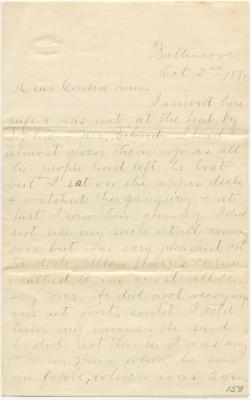 Baltimore,
Oct 2nd 188
Dear Cousin
I arrived here
safe & was met at the boat by
& I had
almost given them up as all
the people had left the boat
but I sat on the upper deck
& watched the gangway & at
last I saw them coming. I did
not use my sack at all coming
over but was very pleasant on
the deck, Allen Harris came
& talked to me most all the
way over. He did not recog
me at first, until I told
him my name. He said
he did not think I was any
than when he saw
me before, which was
158